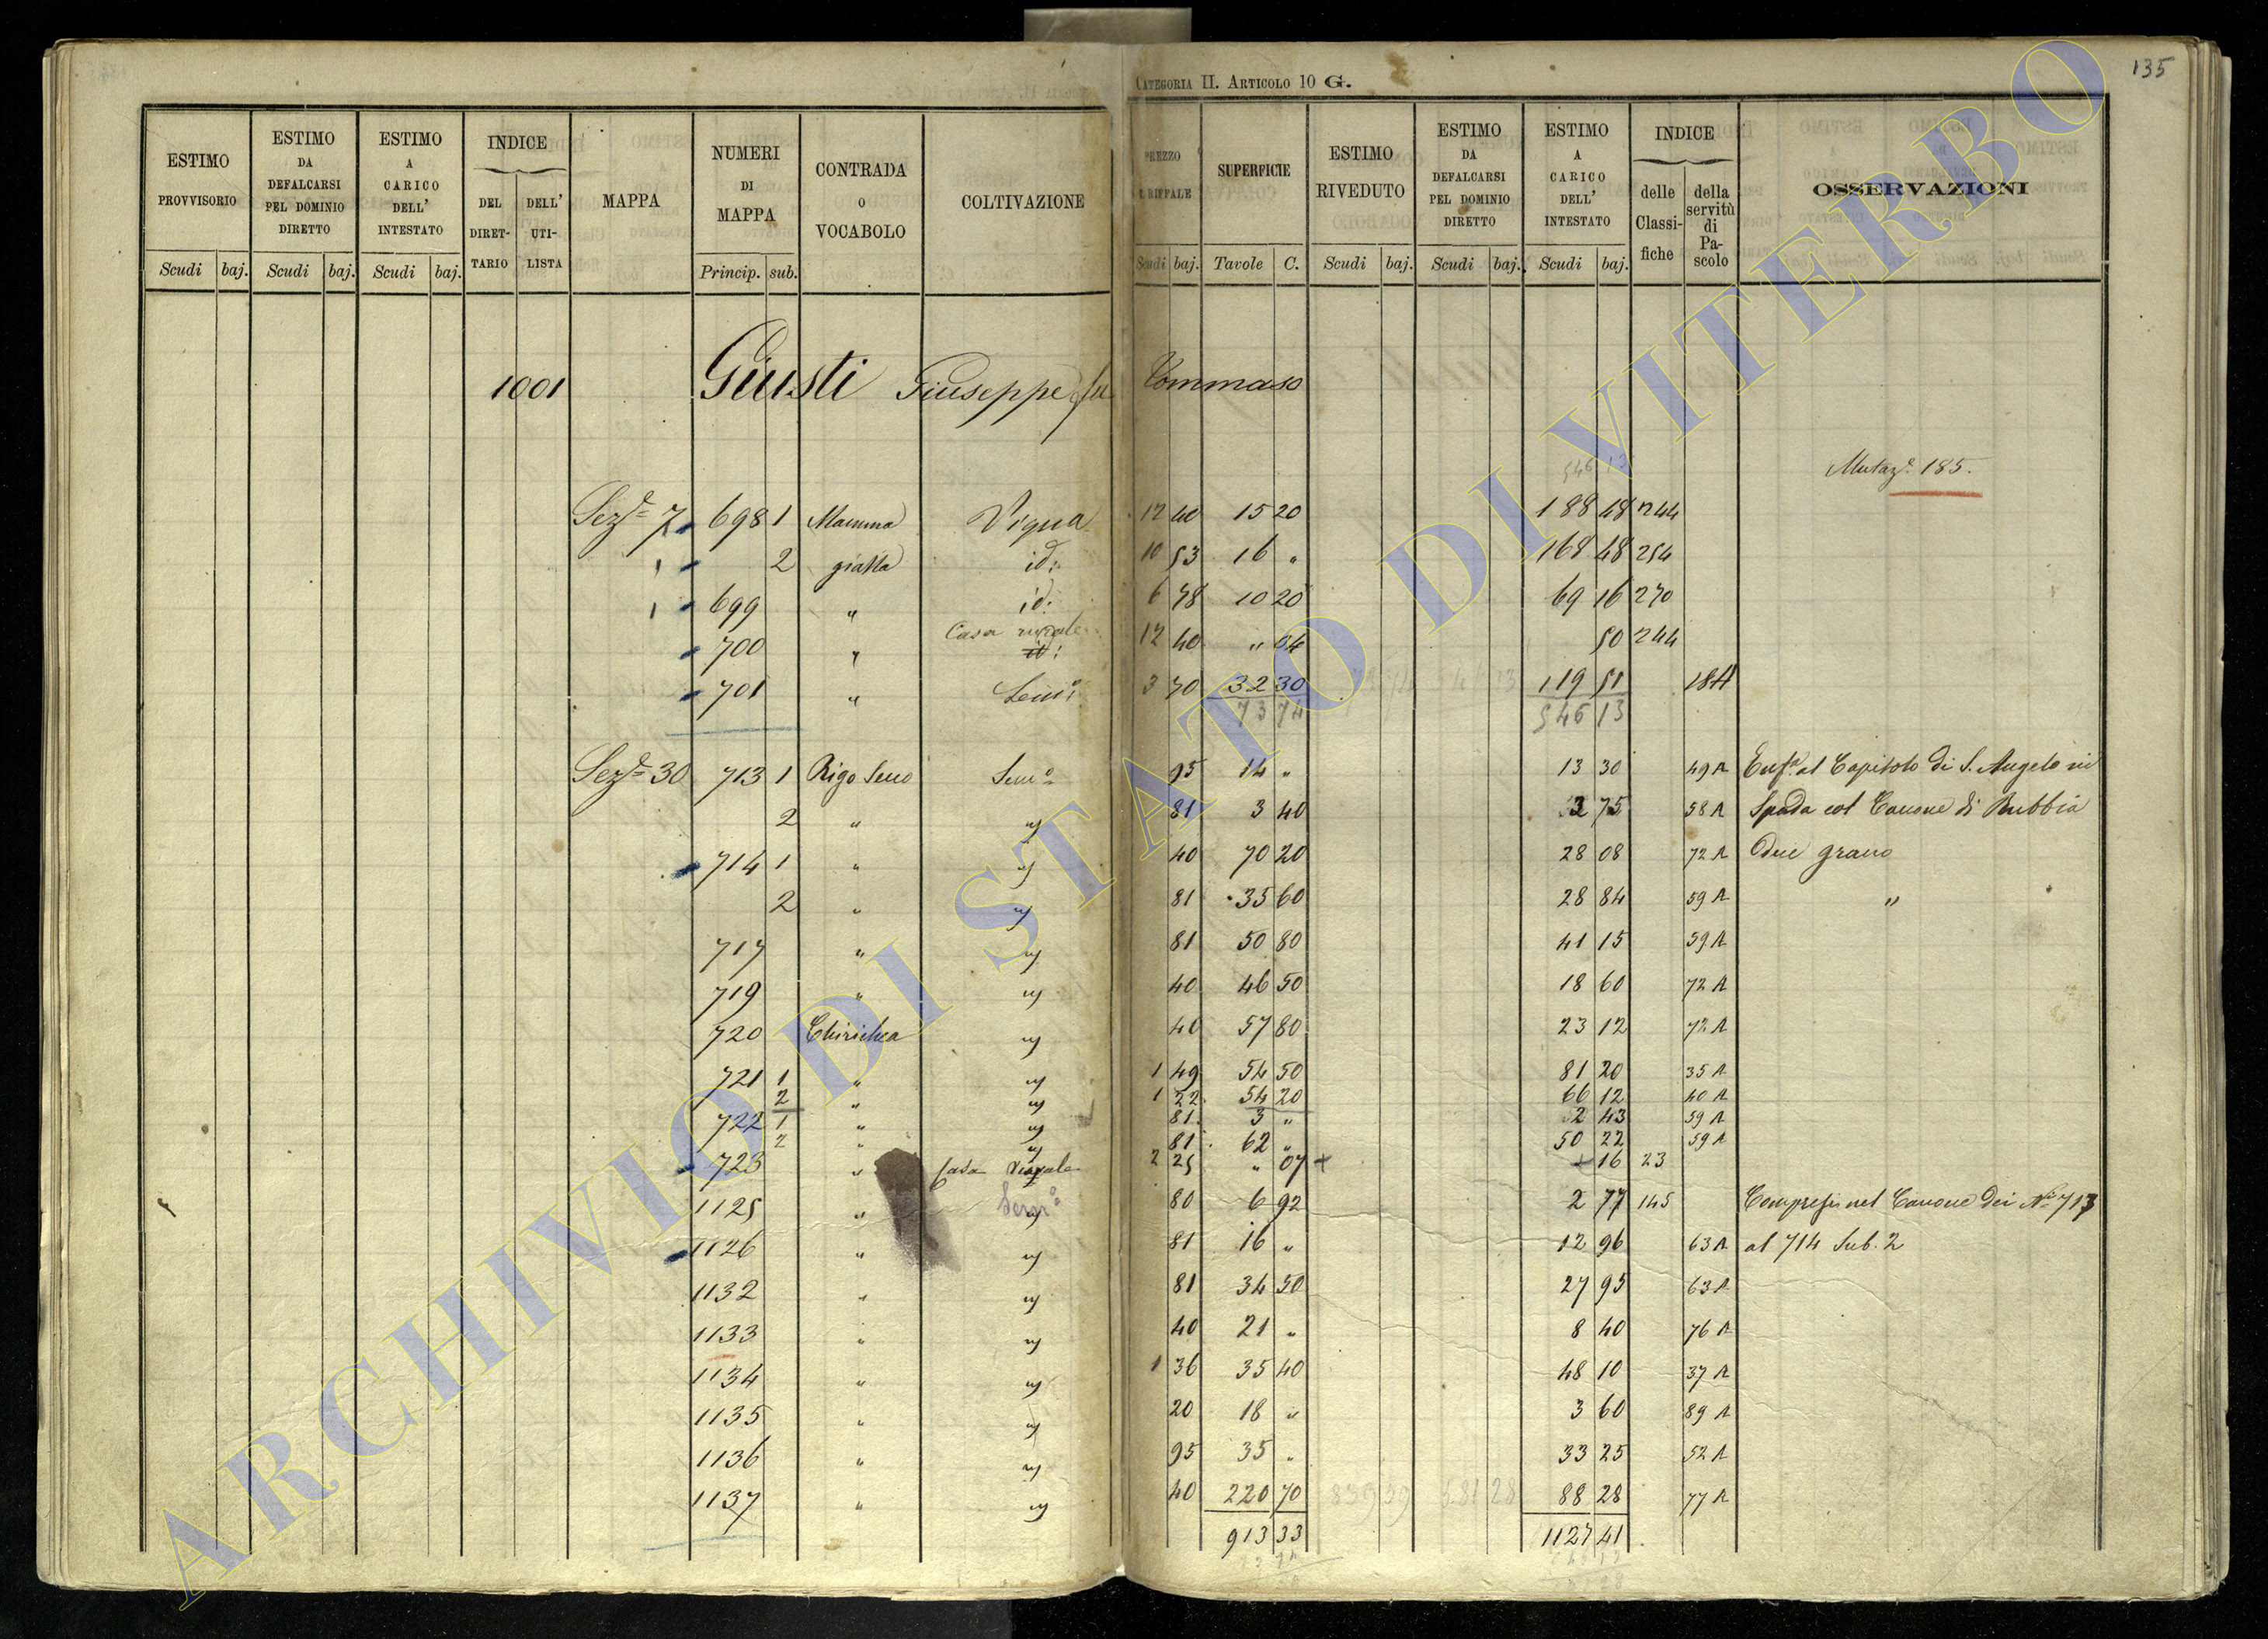 135
CATEGORIA II. ARTICOLO 10 G.
ESTIMO PROVVISORIO | ESTIMO DA DEFALCARSI PEL DOMINIO DIRETTO | ESTIMO A CARICO DELL' INTESTATO | INDICE DEL DIRETTARIO | DELL' UTILISTA | MAPPA | NUMERI DI MAPPA | CONTRADA O VOCABOLO | COLTIVAZIONE | PREZZO | SUPERFICIE | ESTIMO RIVEDUTO | ESTIMO DA DEFALCARSI PEL DOMINIO DIRETTO | ESTIMO A CARICO DELL' INTESTATO | INDICE delle Classifiche | della servitù di Pascolo | OSSERVAZIONI
Scudi baj. Scudi baj. Scudi baj. Princip. sub. Scudi baj. Tavole C. Scudi baj. Scudi baj. Scudi baj.
1001 Giusti Giuseppe fu Tommaso
546 13
Mutazе. 185.
Sezе 7 698 1 Mamma Vigna 12 40 15 20 188 48 244
2 giatta id: 10 53 16 " 168 48 254
699 " id: 6 78 10 20 69 16 270
Casa rurale
700 " id: 12 40 " 04 50 244
701 " Semo: 3 70 32 30 119 51 18A
73 74 546 13
Sezе 30 713 1 Rigo Semo 95 14 " 13 30 49 A Enfa. al Capitolo di S. Angelo in
2 " " 81 3 40 2 75 58 A Spada col Canone di Rubbia
714 1 " " 40 70 20 28 08 72 A due grano
2 " " 81 35 60 28 84 59 A "
717 " " 81 50 80 41 15 59 A
719 " " 40 46 50 18 60 72 A
720 " 40 57 80 23 12 72 A
721 1 " " 1 49 54 50 81 20 35 A
2 " " 1 22 54 20 66 12 40 A
722 1 " " 81 3 " 2 43 59 A
2 " " 81 62 " 50 22 59 A
723 " Casa rurale 2 25 " 07 + 16 23
1125 " Semo: 80 6 92 2 77 145 Compresi nel Canone dei Ni 713
1126 " " 81 16 " 12 96 63 A al 714 Sub. 2
1132 " " 81 34 50 27 95 63 A
1133 " " 40 21 " 8 40 76 A
1134 " " 1 36 35 40 48 10 37 A
1135 " " 20 18 " 3 60 89 A
1136 " " 95 35 " 33 25 52 A
1137 " " 40 220 70 839 39 581 28 88 28 77 A
913 33 1127 41
ARCHIVIO DI STATO DI VITERBO